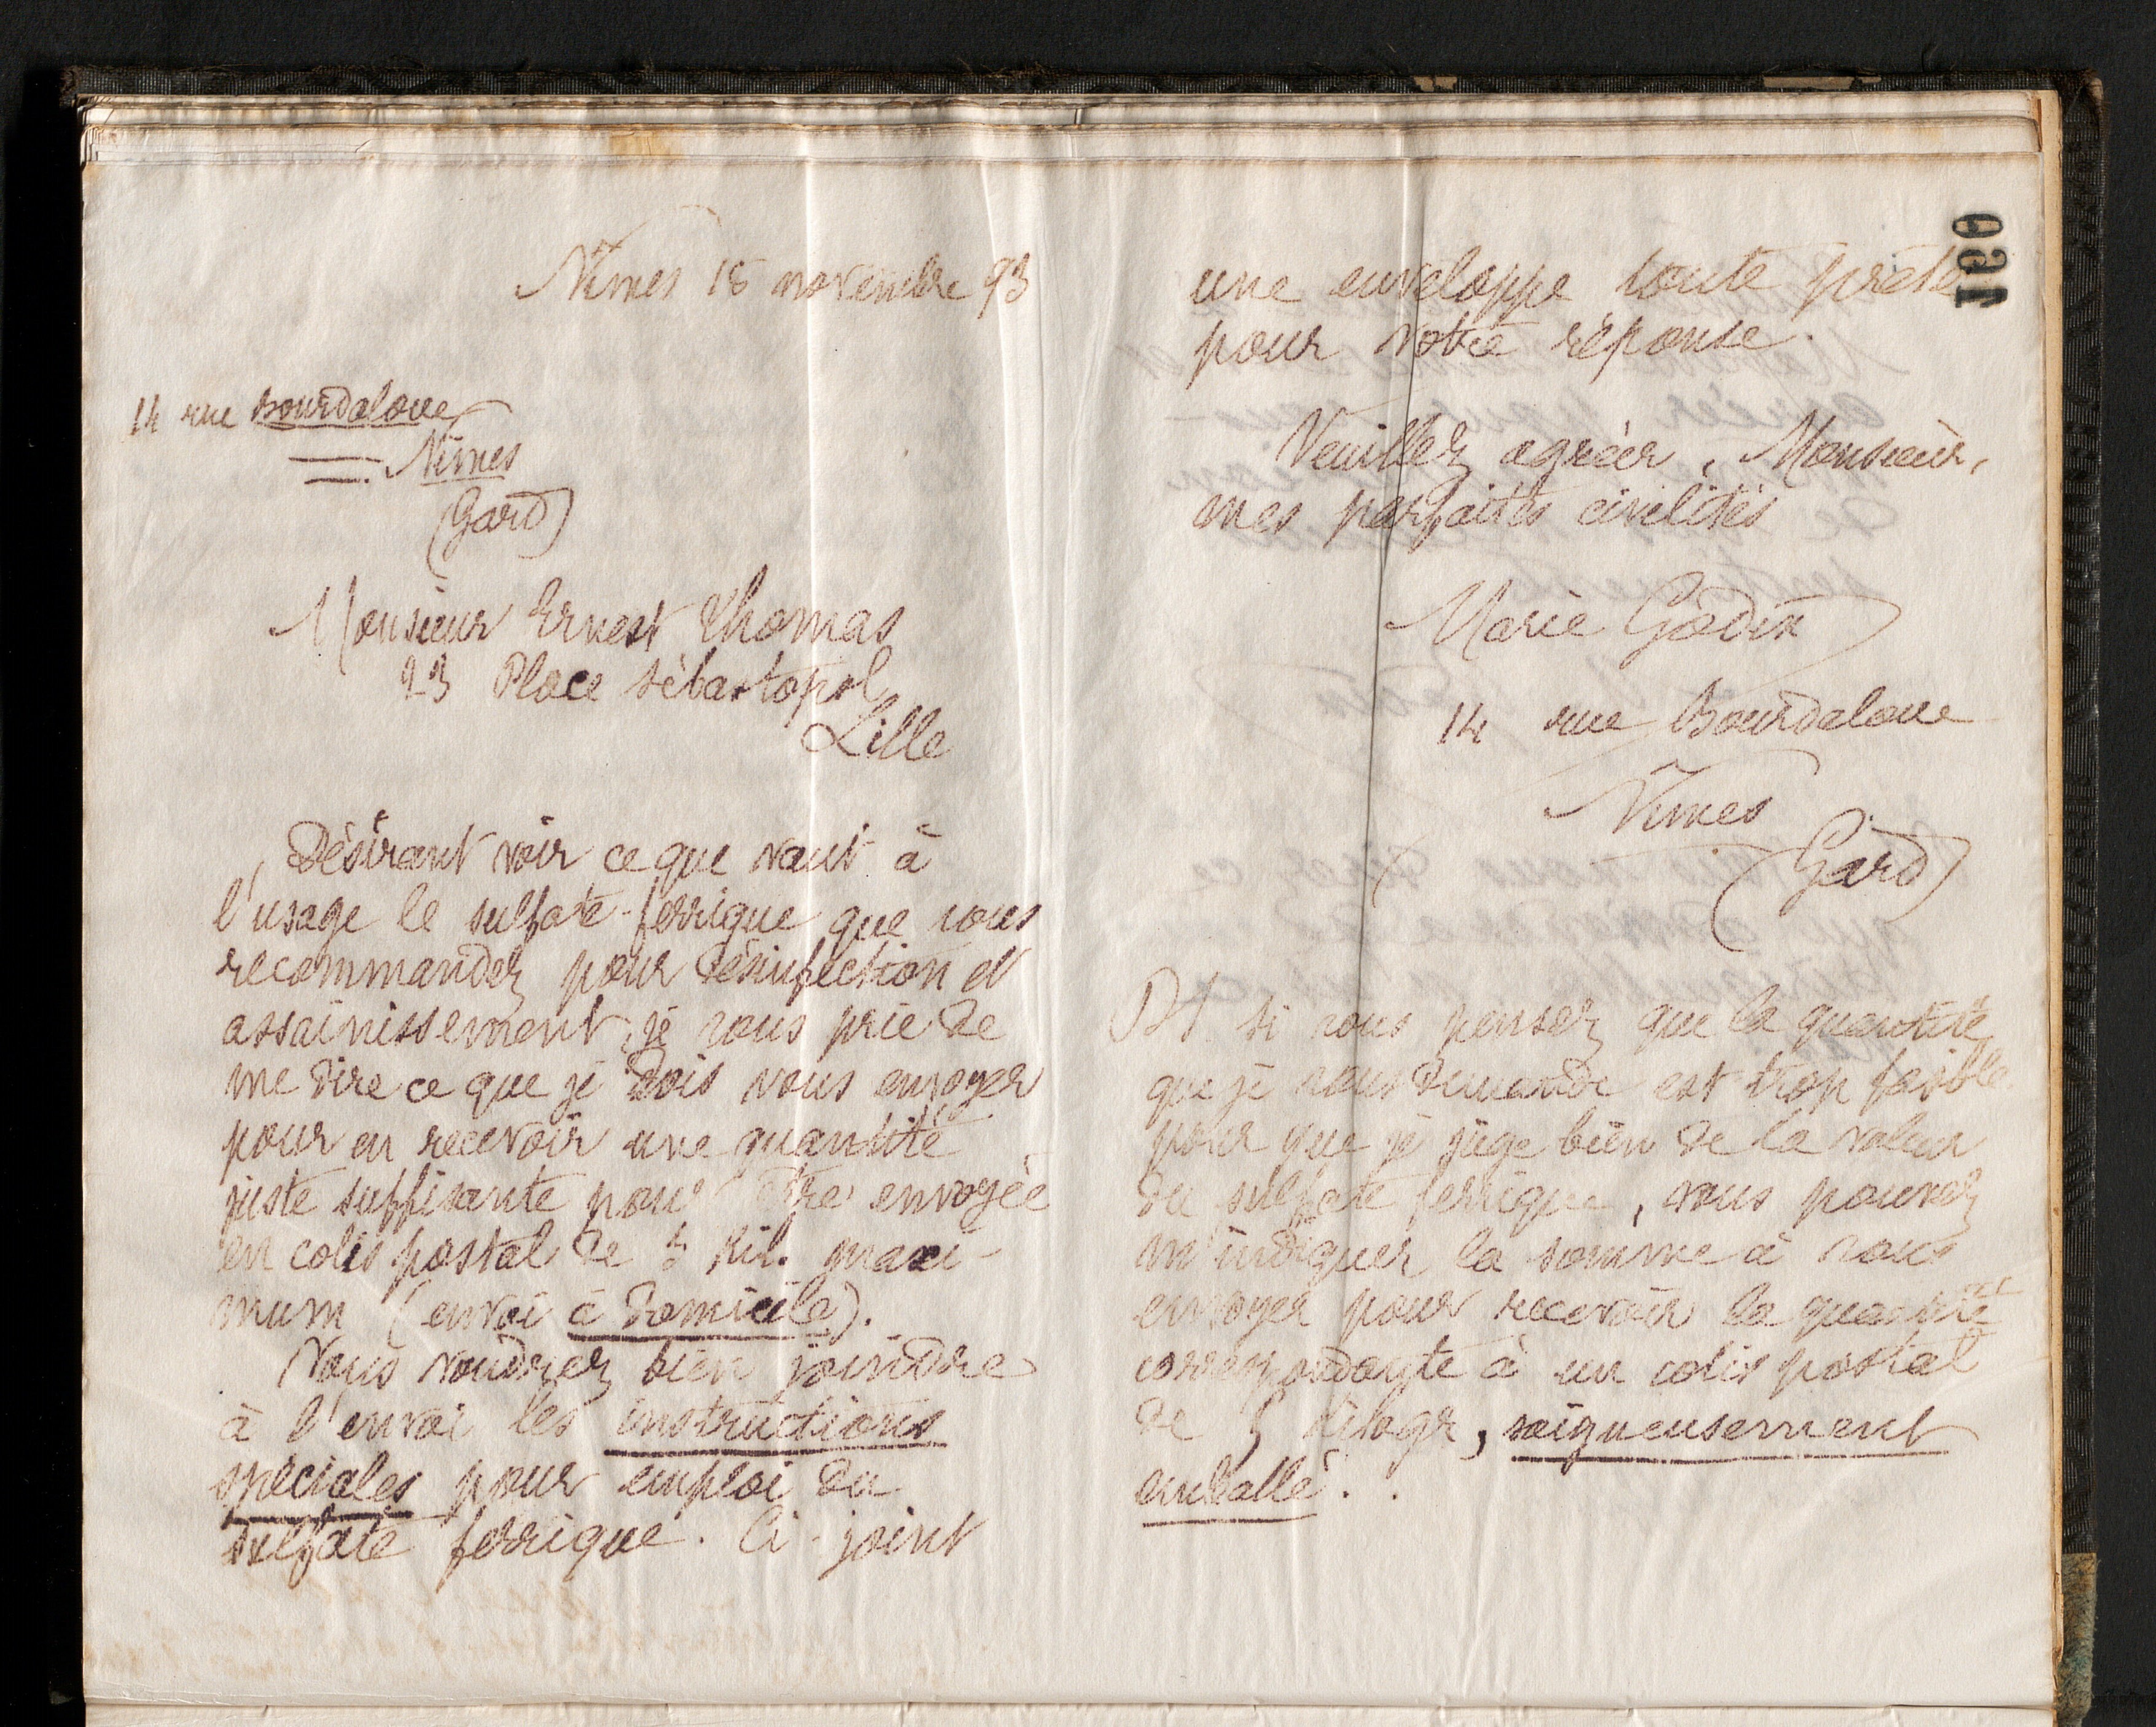 Nîmes 15 novembre 93
14 rue Bourdaloue
Nîmes
(Gard)
Monsieur Ernest Thomas
23 Place Sébastopol
Lille
Désirant voir ce que vaut à
l'usage le sulfate-ferrique que vous
recommandez pour désinfection et
assainissement, je vous prie de
me dire ce que je dois vous envoyer
pour en recevoir une quantité
juste suffisante pour être envoyée
en colis postal de 5 kil. maxi-
mum (envoi à domicile).
Vous voudrez bien joindre
à l'envoi les instructions
spéciales pour emploi du
sulfate ferrique. Ci-joint
199
une enveloppe toute prête
pour votre réponse.
Veuillez agréer, Monsieur,
mes parfaites civilités
Marie Godin
14 rue Bourdaloue
Nîmes
(Gard)
PS. Si vous pensez que la quantité
que je vous demande est trop faible
pour que je juge bien de la valeur
du sulfate ferrique, vous pouvez
m'indiquer la somme à vous
envoyer pour recevoir la quantité
correspondante à un colis postal
de 5 kilogr, soigneusement
emballé.